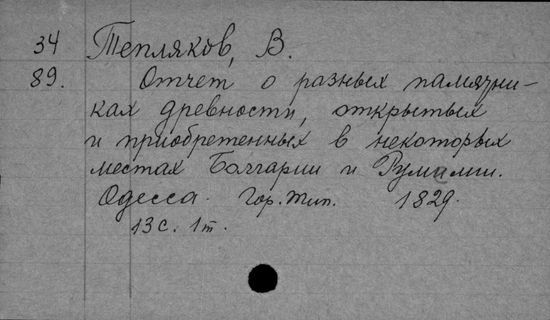 34 Тепляков, В.
89. Отчет о разных памятни-
ках древности, открытых
и приобретенных в некоторых
местах Болгарии и Румелии.
Одесса. Гор. тип. 1829.
13 с. 1 т.